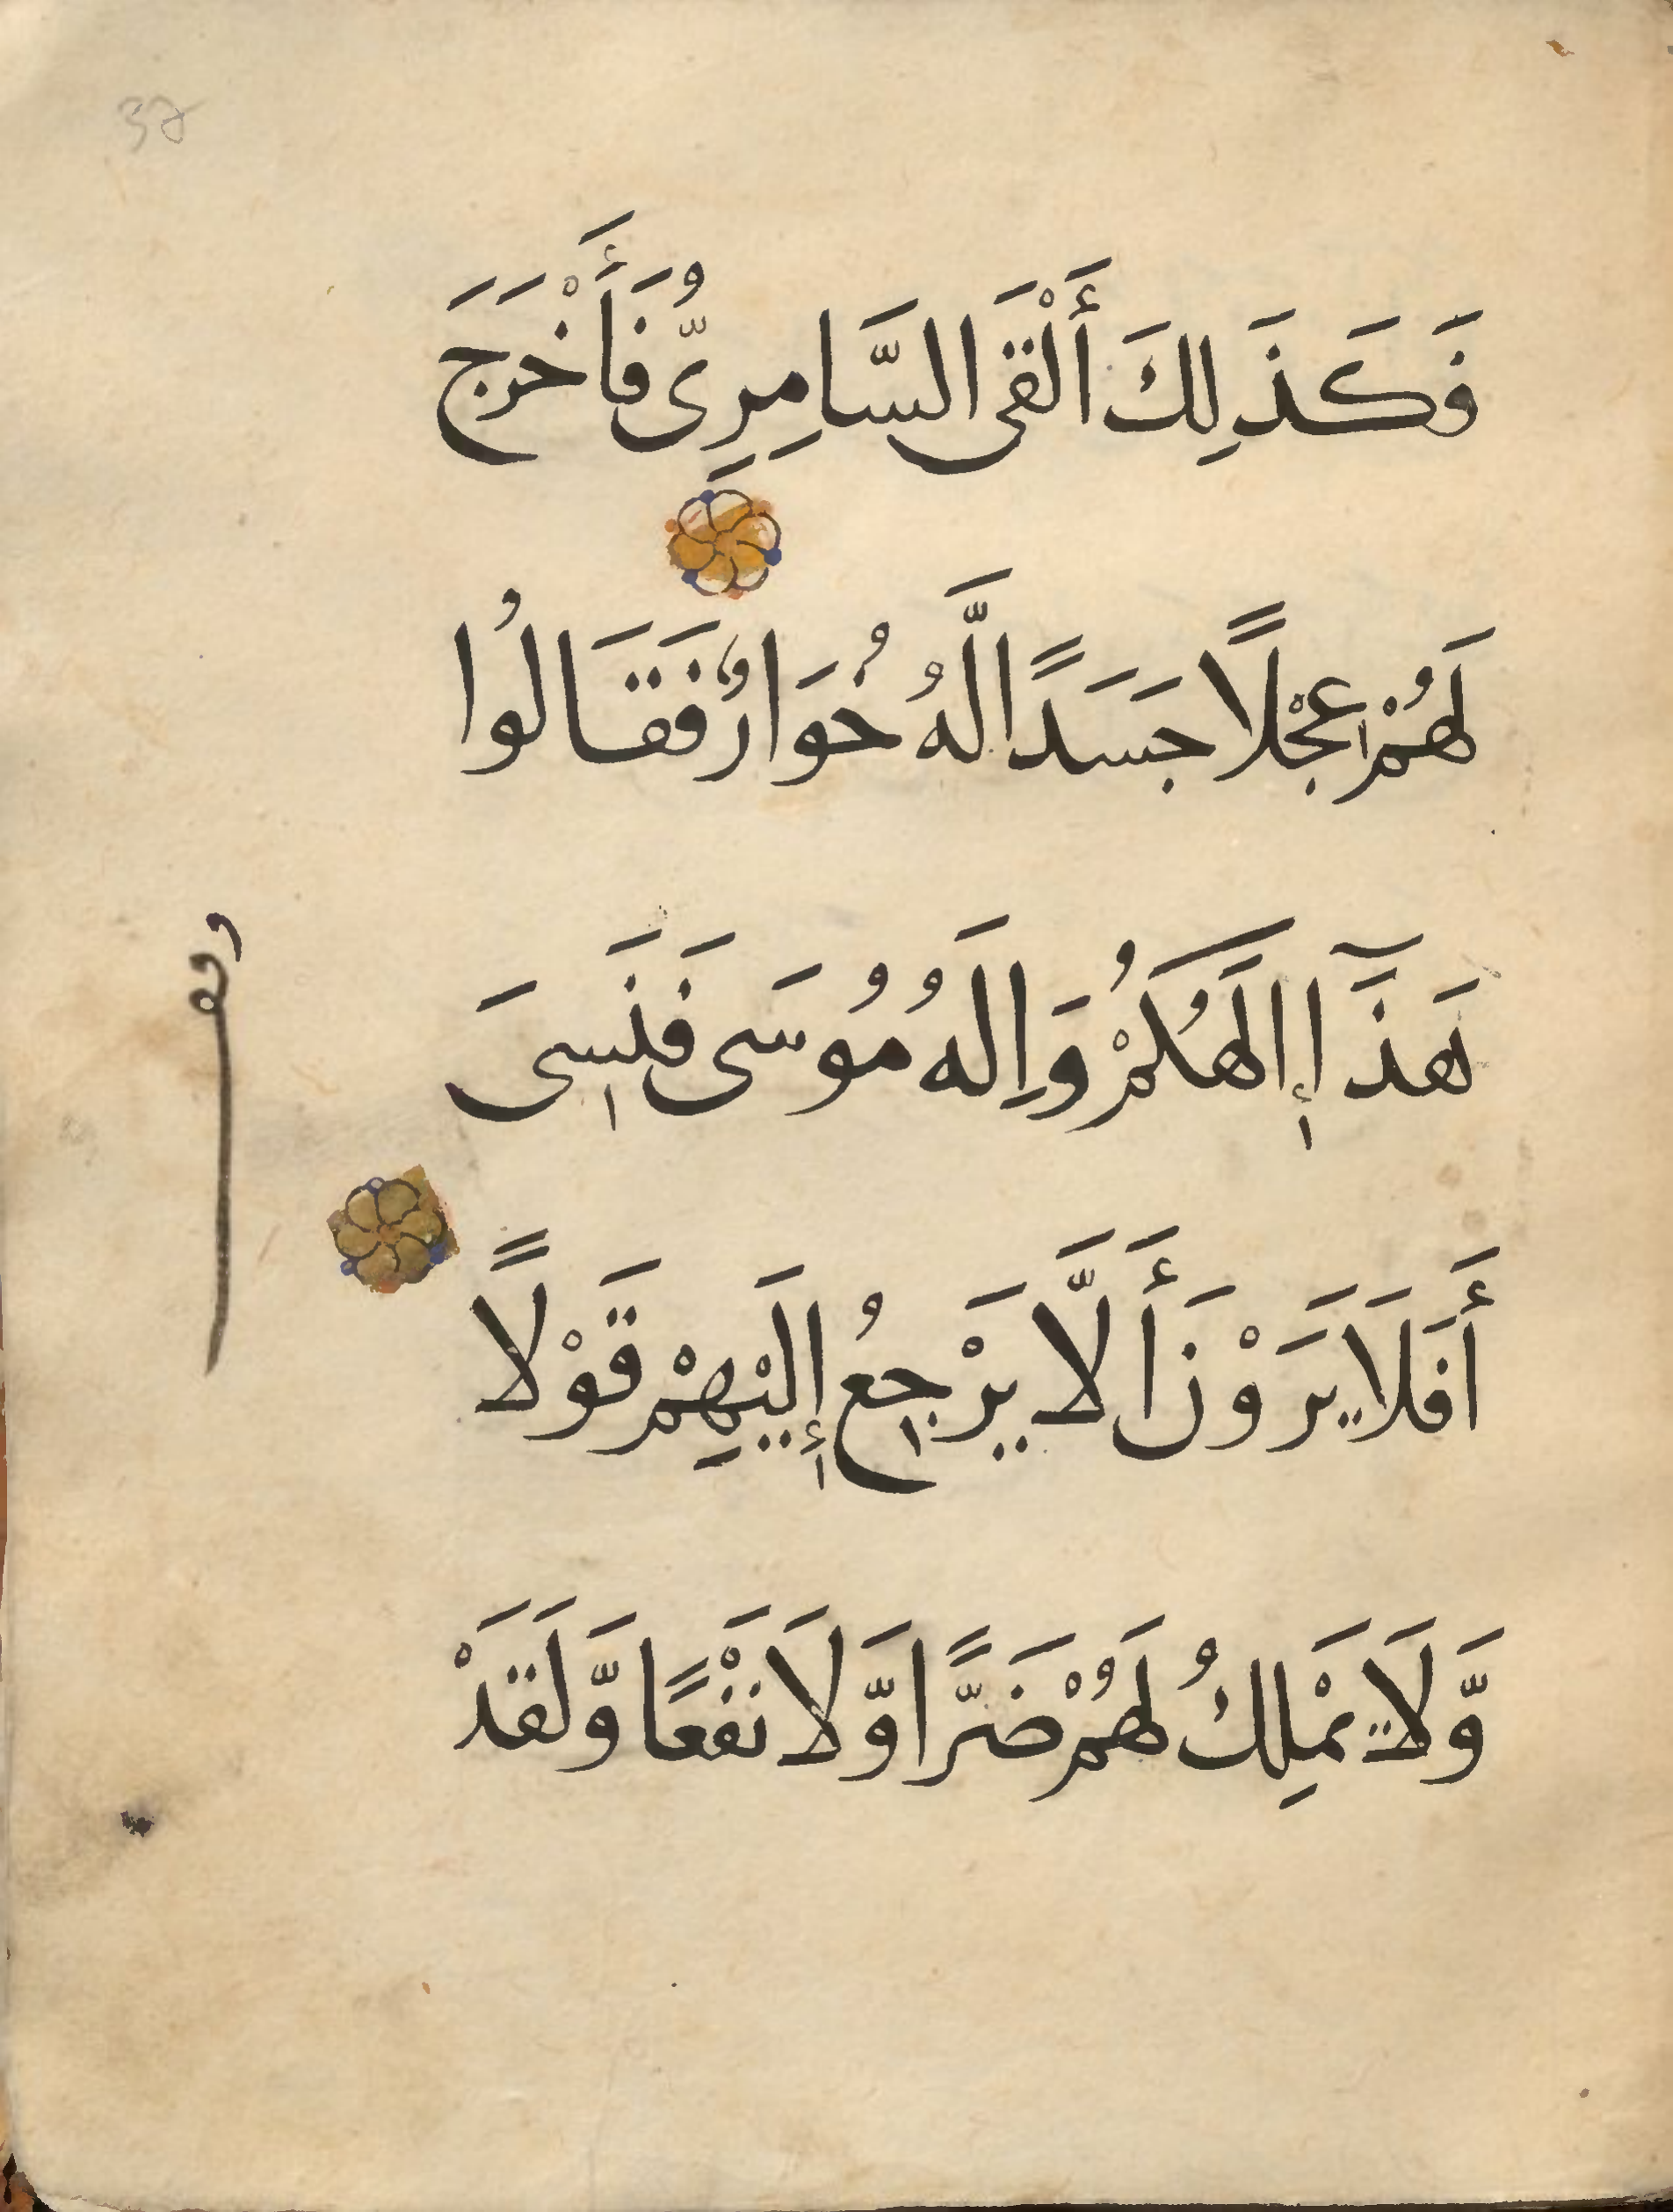 37
فَكَذَلِكَ أَلْقَى السَّامِرِىُّ فَأَخْرَجَ
لَهُمْ عِجْلًا جَسَدًا لَّهُ خُوَارٌ فَقَالُوا
هَذَآ إِلَهُكُمْ وَإِلَهُ مُوسَى فَنَسِىَ
وقف
أَفَلَا يَرَوْنَ أَلَّا يَرْجِعُ إِلَيْهِمْ قَوْلًا
وَّلَا يَمْلِكُ لَهُمْ ضَرًّا وَّلَا نَفْعًا وَّلَقَدْ